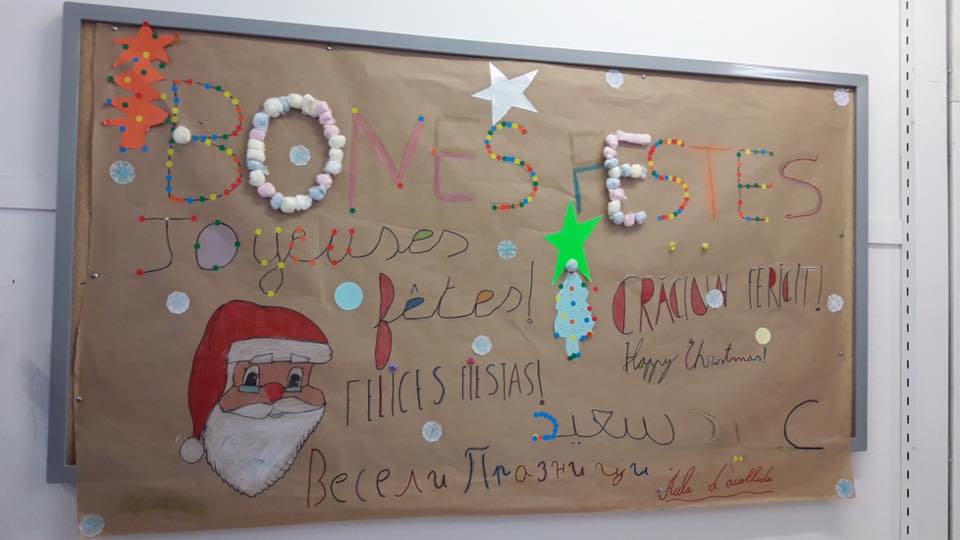 BONES FESTES
Joyeuses
fêtes!
CRĂCIUN FERICIT!
Happy Christmas!
FELICES FIESTAS!
عيد سعيد
Весели Празници
Aula d'acollida